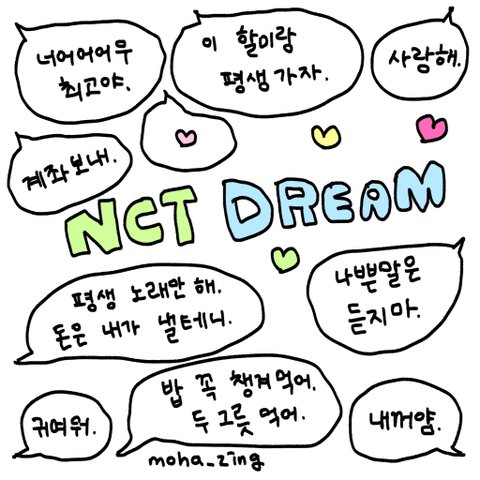 너어어어무
최고야.
이 할미랑
평생가자.
사랑해.
계좌보내.
NCT DREAM
평생 노래만 해.
돈은 내가 낼테니.
나쁜말은
듣지마.
귀여워.
밥 꼭 챙겨먹어.
두그릇 먹어.
내꺼얌.
moha_zing